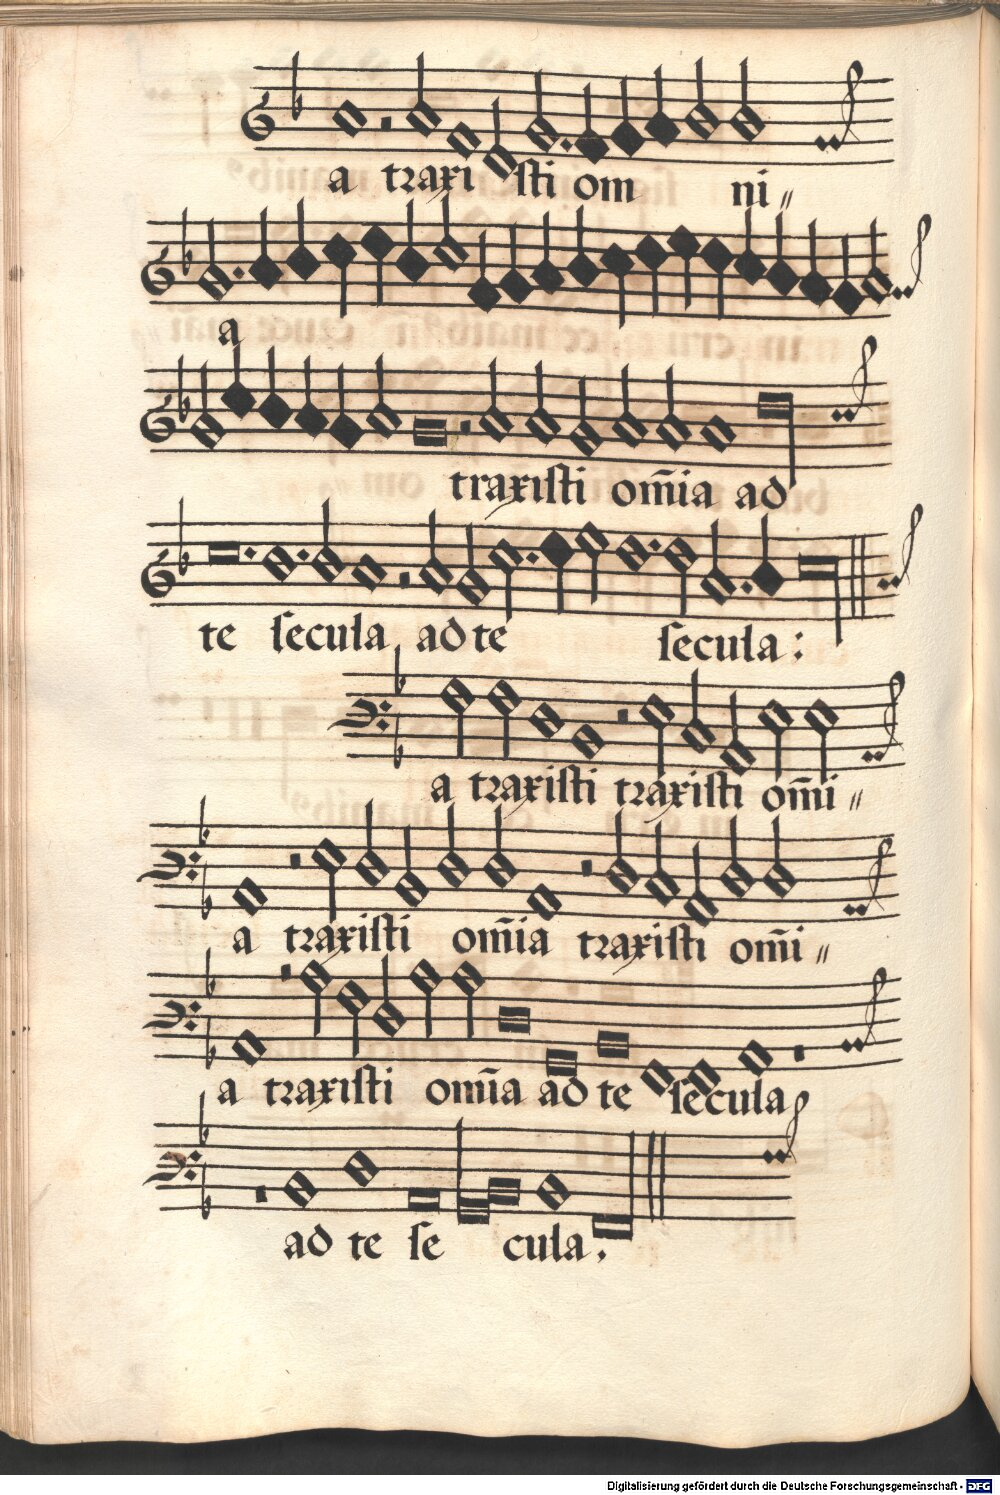 a traxi sti om ni〃
a
traxisti om̃ia ad
te secula ad te secula:
a traxisti traxisti om̃i〃
a traxisti om̃ia traxisti om̃i〃
a traxisti om̃ia ad te secula
ad te se cula.
Digitalisierung gefördert durch die Deutsche Forschungsgemeinschaft - DFG